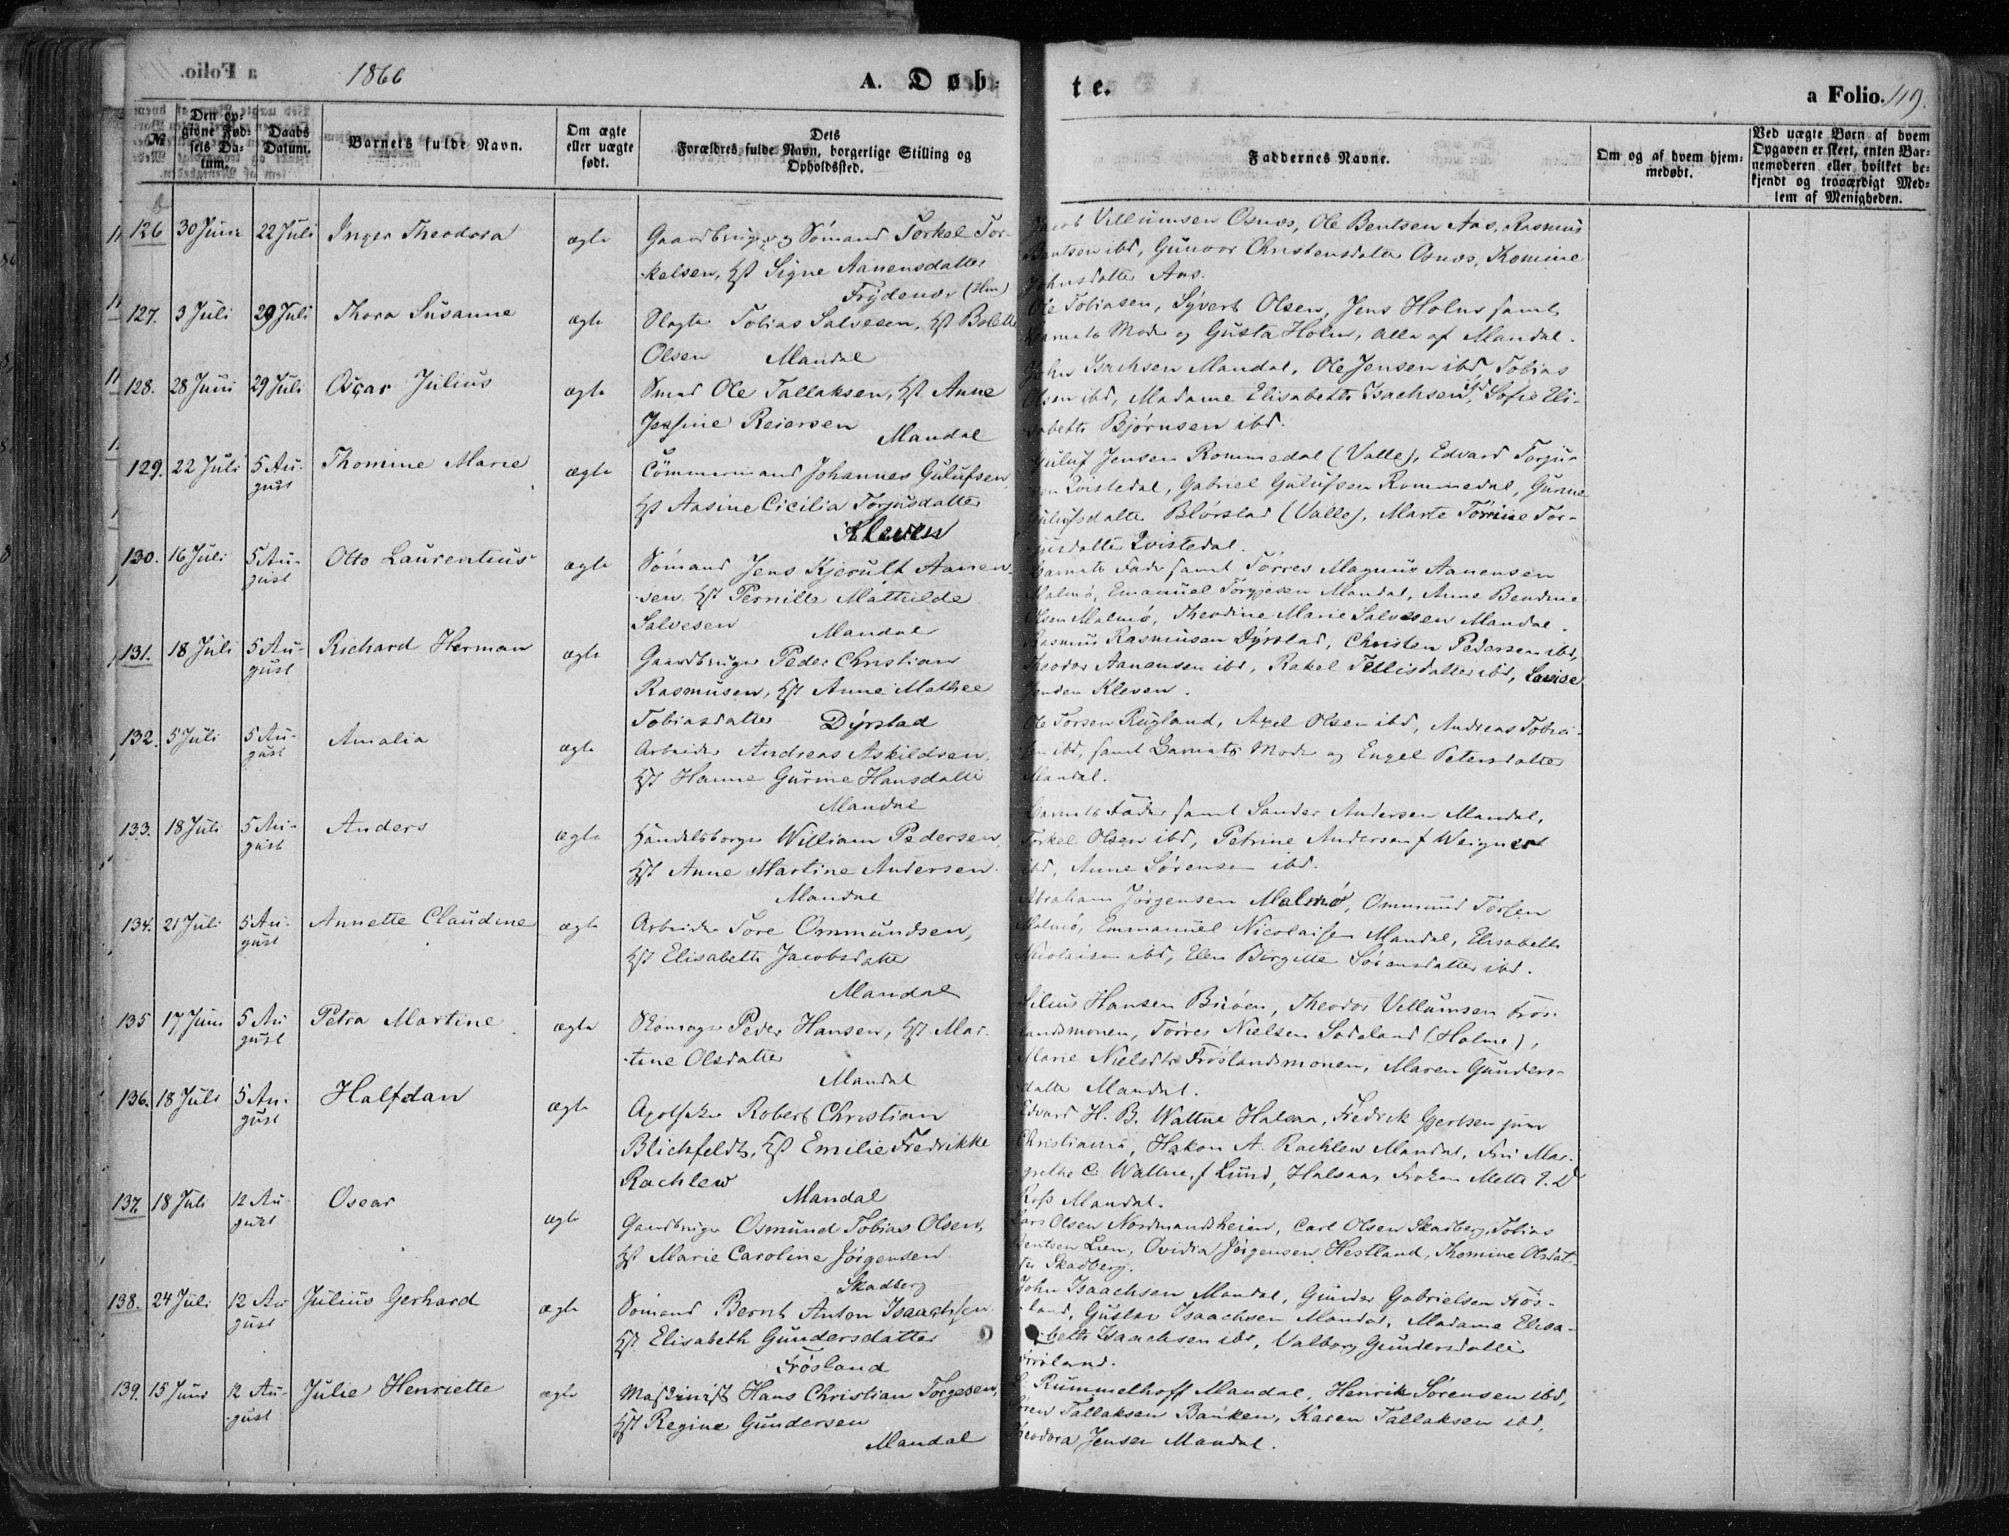 1866
A. Døb-
te.
a Folio. 119.
№
Den op-
givne Fød-
sels Da-
tum.
Daabs
Datum.
Barnets fulde Navn.
Om ægte
eller uægte
født.
Dets
Forældres fulde Navn, borgerlige Stilling og
Opholdssted.
Faddernes Navne.
Om og af hvem hjem-
medøbt.
Ved uægte Børn af hvem
Opgaven er skeet, enten Bar-
nemoderen eller hvilket be-
kjendt og troværdigt Med-
lem af Menigheden.
126 30 Juni 22 Juli Inger Theodora ægte Gaardbruger og Sømand Torkel Tor-
kelsen, Hst Signe Aanensdatter
Frydenes (Hm)
Villumsen Osnes, Ole Bentsen Aas, Rasmus
Bentsen ibd, Gunvor Christensdatter Osnes, Thomine
Johnsdatter Aas.
127. 3 Juli 29 Juli Thora Susanne ægte Slagter Tobias Salvesen, Hst Bolette
Olsen Mandal
Ole Tobiasen, Syvert Olsen, Jens Holm samt
Barnets Moder og Gusta Holm, alle af Mandal.
128. 28 Juni 29 Juli Oscar Julius ægte Smed Ole Tallaksen, Hst Anne
Josfine Reiersen
Mandal
John Isachsen Mandal, Ole Jensen ibd Tobias
Olsen ibd, Madame Elisabeth Isachsen ibd, Sofie Eli-
sabeth Bjørnsen ibd.
129. 22 Juli 5 Au-
gust Thomine Marie ægte Tømmermand Johannes Gulufsen,
Hst Aasine Cicilia Torjusdatter
Kleven
Guluf Jensen Rommedal (Valle), Edvard Torju-
sen Qvistedal, Gabriel Gulufsen Rommedal, Gurine
Gulufsdatter Blørstad (Valle), Marte Tomine Tor-
jusdatter Qvistedal.
130. 16 Juli 5 Au-
gust Otto Laurentius ægte Sømand Jens Kjerulf Aanen-
sen, Hst Pernille Mathilde
Salvesen Mandal
Barnets Fader samt Tørres Magnus Aanensen
Malmø, Emanuel Torgjesen Mandal, Anne Bendine
Olsen Malmø, Theodine Marie Salvesen Mandal.
131. 18 Juli 5 Au-
gust Richard Herman ægte Gaardbruger Peder Christian
Rasmusen, Hst Anne Mathee
Tobiasdatter Dyrstad
Rasmus Rasmusen Dyrstad, Christen Pedersen ibd,
Theodor Aanensen ibd, Rakel Tellisdatter ibd, Lovise
Kleven.
132. 5 Juli 5 Au-
gust Amalia ægte Arbeider Andreas Askildsen,
Hst Hanne Gurine Hansdatter
Mandal
Ole Torsen Rugland, Axel Olsen ibd, Andreas Tobia-
sen ibd, samt Barnets Moder og Engel Petersdatter
Mandal.
133. 18 Juli 5 Au-
gust Anders ægte Handelsborger William Pedersen,
Hst Anne Martine Andersen
Mandal
Barnets Fader samt Sander Andersen Mandal,
Torkel Olsen ibd, Petrine Andersen f Weigner
ibd, Anne Sørensen ibd.
134. 21 Juli 5 Au-
gust Annette Claudine ægte Arbeider Tore Ommundsen,
Hst Elisabeth Jacobsdatter
Mandal
Abraham Jørgensen Malmø, Ommund Torsen
Malmø, Emmanuel Nicolaisen Mandal, Elisabeth
Nicolaisen ibd, Elen Birgitte Sørensdatter ibd.
135 17 Juni 5 Au
gust Petra Martine ægte Skomager Peder Hansen, Hst Mar-
tine Olsdatter
Mandal
Silius Hansen Buøen, Theodor Villumsen Frøs-
landsmonen, Tørres Nielsen Sødeland (Holme),
Marie Nielsdtr Frøslandsmonen, Maren Gunders-
datter Mandal.
136. 18 Juli 5 Au-
gust Halfdan ægte Apotheker Robert Christian
Blichfeldt, Hst Emilie Fredrikke
Rachlew
Mandal
Edvard H. B. Wattne Halsaa, Fredrik Gjertsen jun
Christiania, Hakon A. Rachlew Mandal, Fru Mar-
grethe C. Wattne f Lund, Halsaa, Frøken Mette
Ross Mandal.
137. 18 Juli 12 Au-
gust Oscar ægte Gaardbruger Osmund Tobias Olsen,
Hst Marie Caroline Jørgensen
Skadberg
Lars Olsen Nordmandsheien, Carl Olsen Skadberg, Tobias
Bentsen Lien, Ovidia Jørgensen Hestland, Thomine Olsdat-
ter Skadberg.
138. 24 Juli 12 Au
gust Julius Gerhard ægte Sømand Bernt Anton Isaachsen
Hst Elisabeth Gundersdatter
Frøsland
John Isaachsen Mandal, Gunder Gabrielsen Frøs-
land, Gustav Isaachsen Mandal, Madame Elisa-
beth Isaachsen ibd, Valborg Gundersdatter
Frøsland.
139. 15 Juni 12 Au-
gust Julie Henriette ægte Maskinist Hans Christian Torgesen,
Hst Regine Gundersen
Mandal
Rummelhoff Mandal, Henrik Sørensen ibd,
Søren Tallaksen Banken, Karen Tallaksen ibd,
Theodora Jensen Mandal.